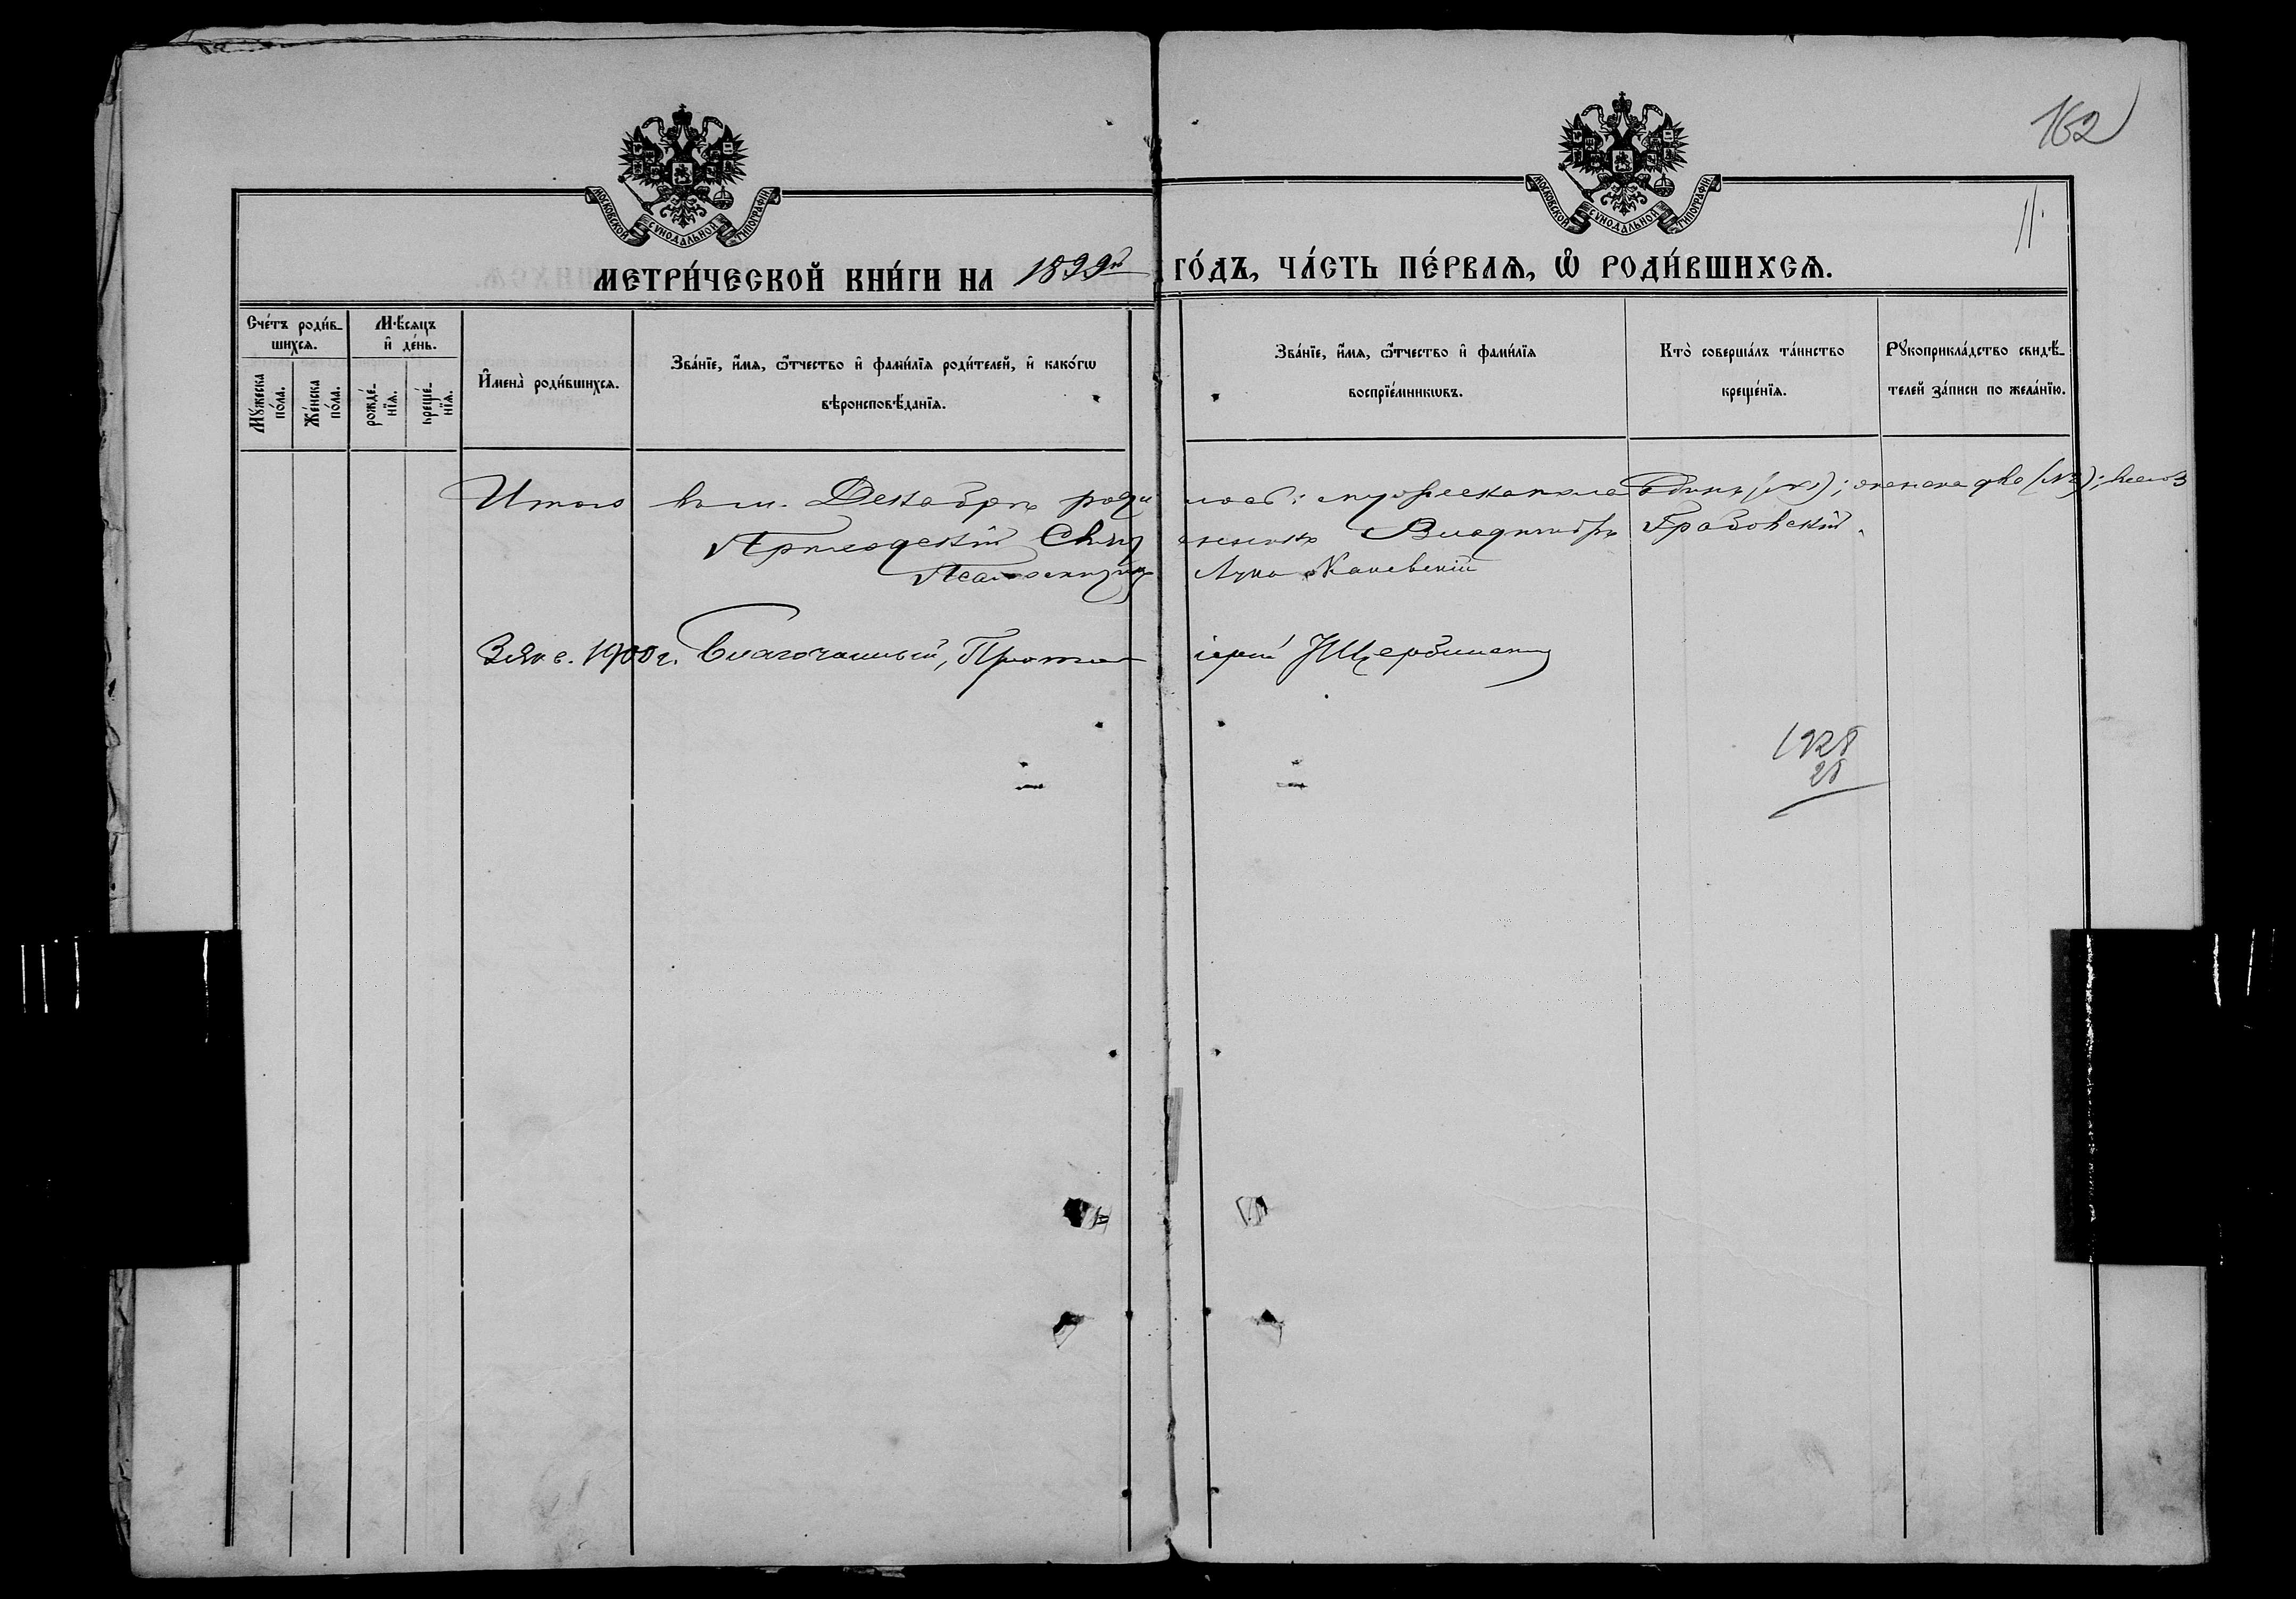 162
11.
МОСКОВСКОЙ СѴНОДАЛЬНОЙ ТИПОГРАФІИ
МОСКОВСКОЙ СѴНОДАЛЬНОЙ ТИПОГРАФІИ
МЕТРИ́ЧЕСКОЙ КНИ́ГИ НА 1899й ГО́ДЪ, ЧА́СТЬ ПЕ́РВАѦ, Ѡ҆ РОДИ́ВШИХСѦ.
Сче́тъ роди́в-
шихсѧ.
Мꙋ́жеска
по́ла.
Же́нска
по́ла.
Мѣ́сѧцъ
и҆ де́нь.
рожде́-
нїѧ.
креще́-
нїѧ.
И҆мена̀ роди́вшихсѧ.
Зва́нїе, и҆́мѧ, ѻ҆́тчество и҆ фами́лїѧ роди́телей, и҆ како́гѡ
вѣроисповѣ́данїѧ.
Зва́нїе, и҆́мѧ, ѻ҆́тчество и҆ фами́лїѧ
воспрїе́мникѡвъ.
Кто̀ соверша́лъ та́инство
креще́нїѧ.
Рꙋкоприкла́дство свидѣ́-
телей за́писи по жела́нїю.
Итого въ м. Декабрѣ родилось: мужеска пола Одинъ (№1); женска два (№2); всего 3
Приходскій Священникъ Владиміръ Грабовскій.
Псаломщикъ Лука Каневскій
3 Янв. 1900 г. Благочинный, Протоіерей Щербинскій
1928
28